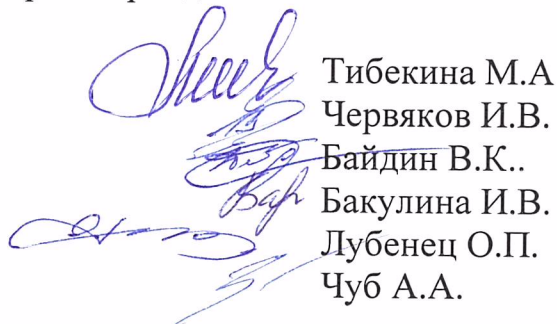 Тибекина М.А
Червяков И.В.
Байдин В.К..
Бакулина И.В.
Лубенец О.П.
Чуб А.А.